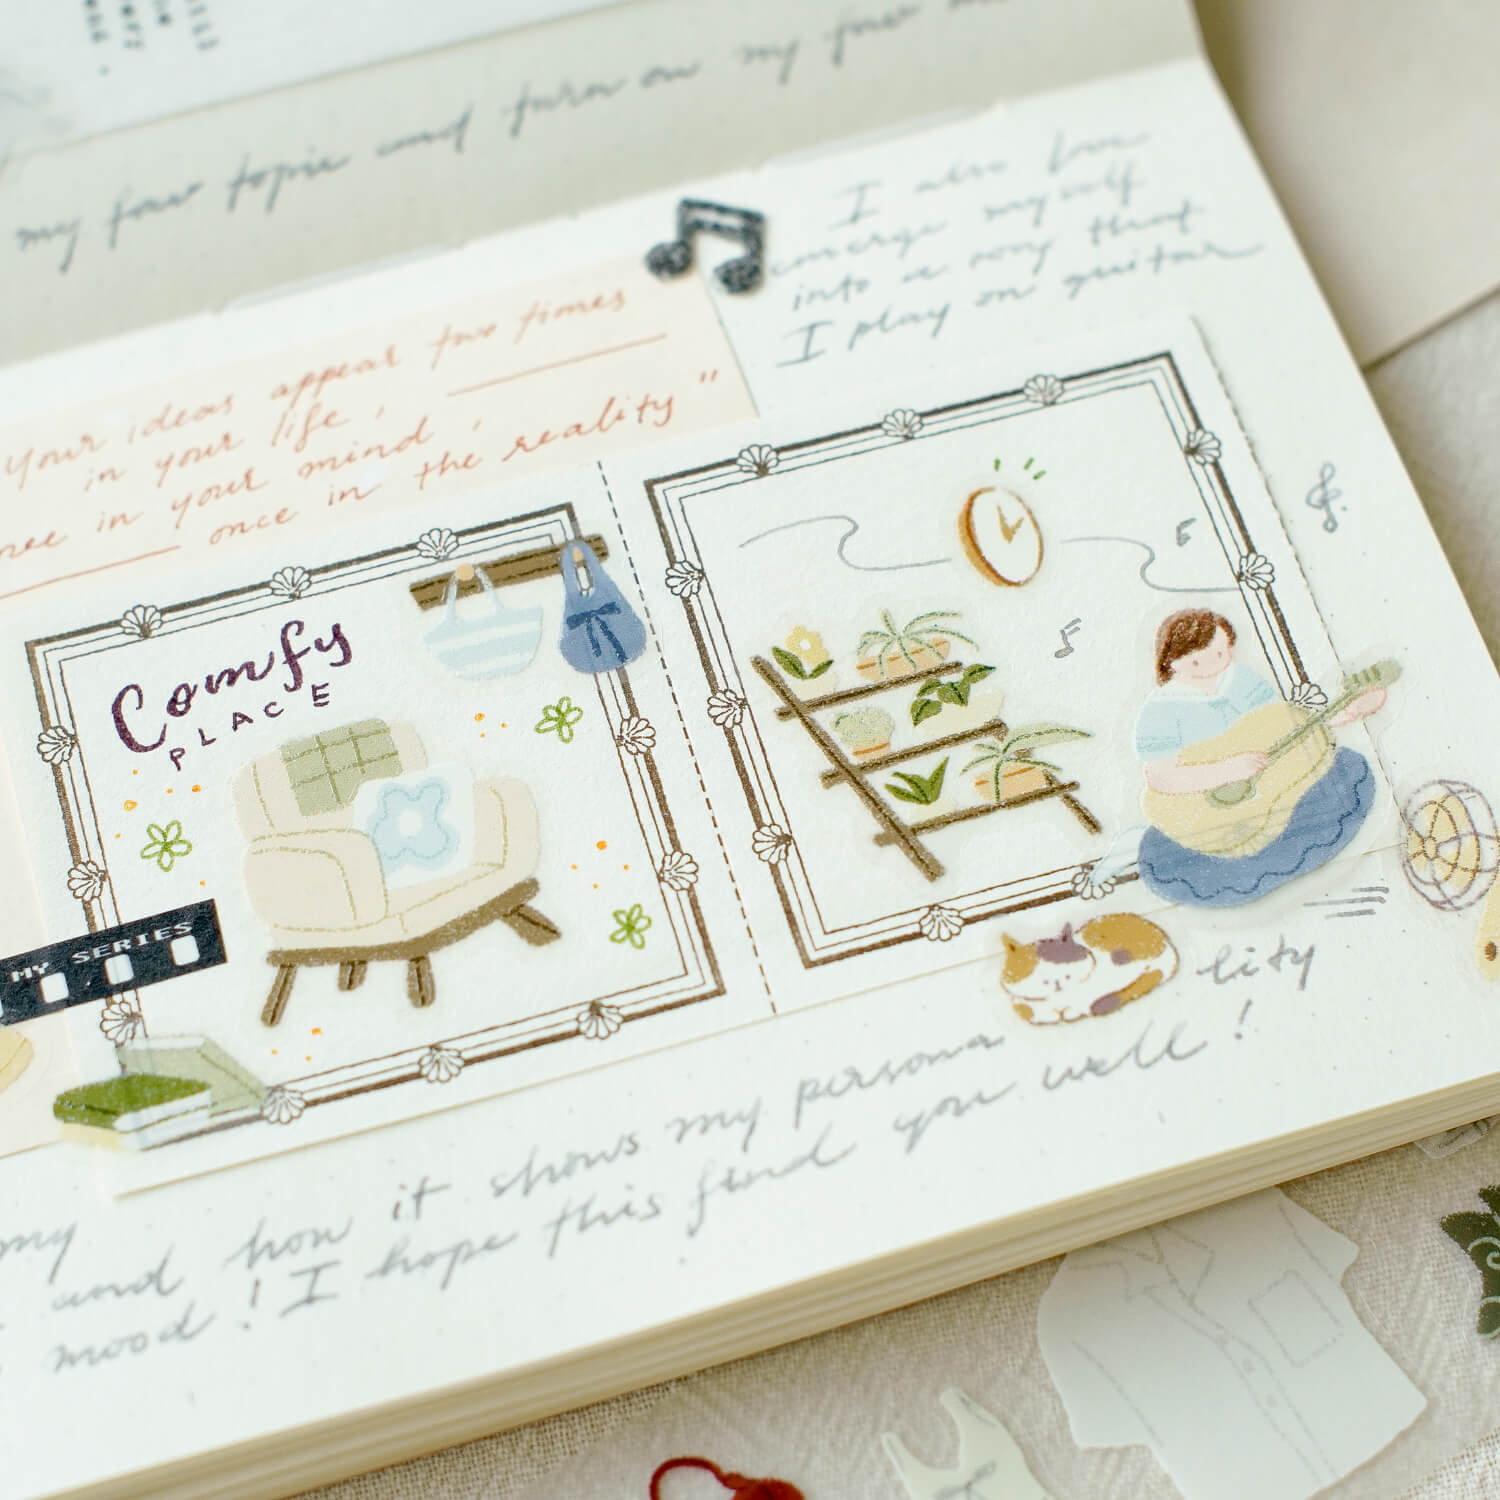 my four topic and turn on my four
I also love
emerge myself
into a song that
I play on guitar
Your ideas appear two times
in your life,
in your mind,
once in the reality"
Comfy
PLACE
MY SERIES
lity
my
and how it shows my persona
mood! I hope this find you well!